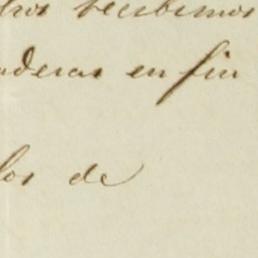 tros recibimos
aderas en fin
los de